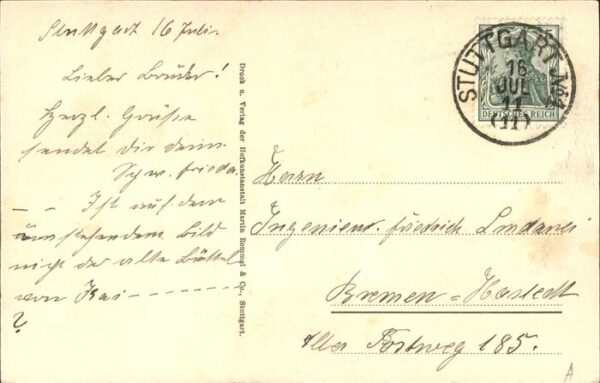 Stuttgart 16 Juli.
Lieber Bruder!
Herzl. Grüsse
sendet dir deine
Schw. Frieda.
– – Ist auf dem
umstehendem Bild
nicht der alte Büttel
von
?
Druck u. Verlag der Hofkunstanstalt Martin Rommel & Co., Stuttgart.
STUTTGART No 1
16
JUL
11
(11)
5
DEUTSCHES REICH
Herrn
Ingenieur. Friedrich
Bremen = Hastedt
Postweg 185.
A